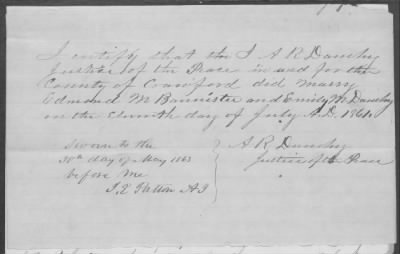 I certify that the I A R Dunsby
Justice of the Peace in and for the
County of Crawford did marry
Edmond M Bannister and Emily M Dunsby
on the Eleventh day of July A.D. 1861.
Sworn to the
30th day of May 1863
before me
A R Dunsby
Justice of the Peace